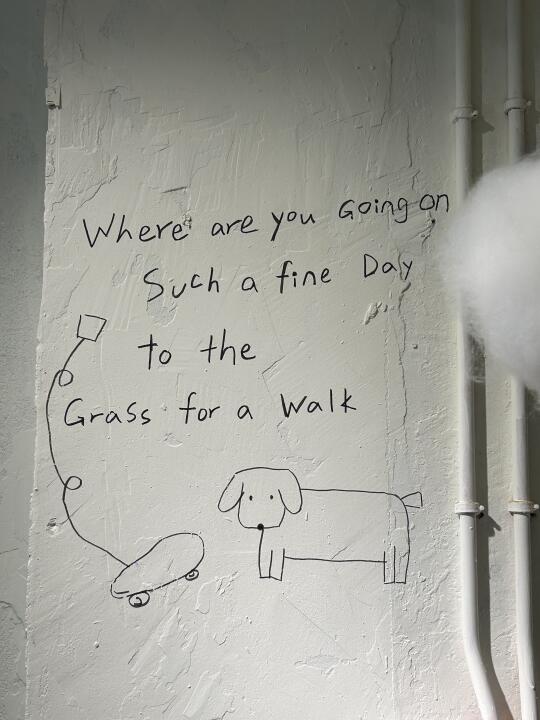 Where are you Going on
Such a fine Day
to the
Grass for a Walk